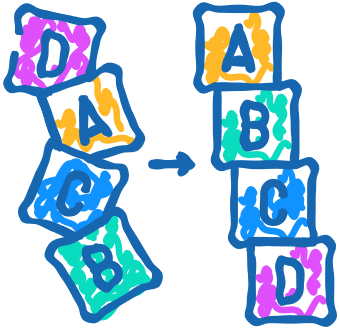 D
A
C
B
A
B
C
D